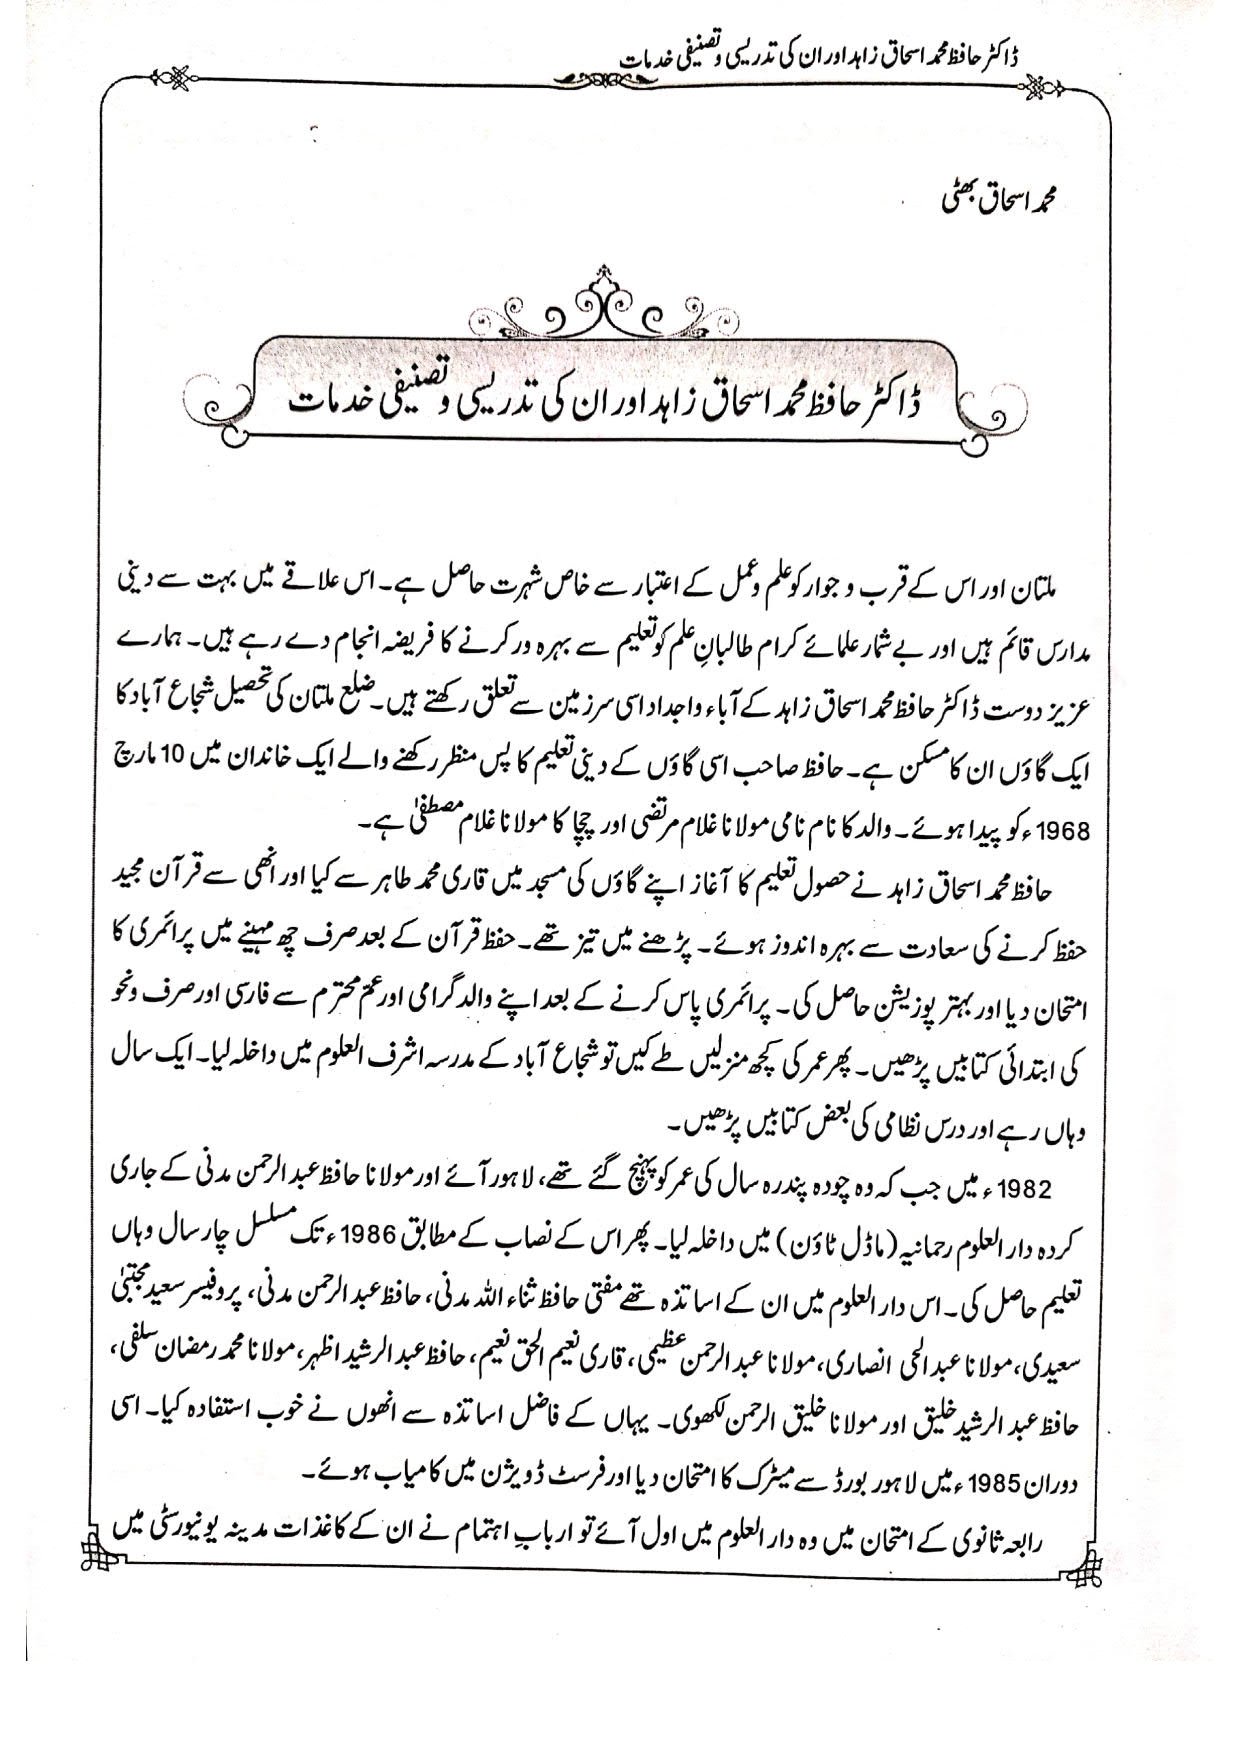 ڈاکٹر حافظ محمد اسحاق زاہد اور ان کی تدریسی و تصنیفی خدمات
محمد اسحاق بھٹی
ڈاکٹر حافظ محمد اسحاق زاہد اور ان کی تدریسی و تصنیفی خدمات
ملتان اور اس کے قرب و جوار کو علم و عمل کے اعتبار سے خاص شہرت حاصل ہے۔ اس علاقے میں بہت سے دینی
مدارس قائم ہیں اور بے شمار علمائے کرام طالبانِ علم کو تعلیم سے بہرہ ور کرنے کا فریضہ انجام دے رہے ہیں۔ ہمارے
عزیز دوست ڈاکٹر حافظ محمد اسحاق زاہد کے آباء و اجداد اسی سرزمین سے تعلق رکھتے ہیں۔ ضلع ملتان کی تحصیل شجاع آباد کا
ایک گاؤں ان کا مسکن ہے۔ حافظ صاحب اسی گاؤں کے دینی تعلیم کا پس منظر رکھنے والے ایک خاندان میں 10 مارچ
1968ء کو پیدا ہوئے۔ والد کا نام نامی مولانا غلام مرتضی اور چچا کا مولانا غلام مصطفیٰ ہے۔
حافظ محمد اسحاق زاہد نے حصول تعلیم کا آغاز اپنے گاؤں کی مسجد میں قاری محمد طاہر سے کیا اور انھی سے قرآن مجید
حفظ کرنے کی سعادت سے بہرہ اندوز ہوئے۔ پڑھنے میں تیز تھے۔ حفظ قرآن کے بعد صرف چھ مہینے میں پرائمری کا
امتحان دیا اور بہتر پوزیشن حاصل کی۔ پرائمری پاس کرنے کے بعد اپنے والد گرامی اور عمّ محترم سے فارسی اور صرف ونحو
کی ابتدائی کتابیں پڑھیں۔ پھر عمر کی کچھ منزلیں طے کیں تو شجاع آباد کے مدرسہ اشرف العلوم میں داخلہ لیا۔ ایک سال
وہاں رہے اور درس نظامی کی بعض کتابیں پڑھیں۔
1982ء میں جب کہ وہ چودہ پندرہ سال کی عمر کو پہنچ گئے تھے، لاہور آئے اور مولانا حافظ عبدالرحمن مدنی کے جاری
کردہ دار العلوم رحمانیہ (ماڈل ٹاؤن) میں داخلہ لیا۔ پھر اس کے نصاب کے مطابق 1986ء تک مسلسل چار سال وہاں
تعلیم حاصل کی۔ اس دار العلوم میں ان کے اساتذہ تھے مفتی حافظ ثناء اللہ مدنی، حافظ عبدالرحمن مدنی، پروفیسر سعید مجتبیٰ
سعیدی، مولانا عبدالحی انصاری، مولانا عبدالرحمن عظیمی، قاری نعیم الحق نعیم، حافظ عبدالرشید اظہر، مولانا محمد رمضان سلفی،
حافظ عبد الرشید خلیق اور مولانا خلیق الرحمن لکھوی۔ یہاں کے فاضل اساتذہ سے انھوں نے خوب استفادہ کیا۔ اسی
دوران 1985ء میں لاہور بورڈ سے میٹرک کا امتحان دیا اور فرسٹ ڈویژن میں کامیاب ہوئے۔
رابعہ ثانوی کے امتحان میں وہ دار العلوم میں اول آئے تو اربابِ اہتمام نے ان کے کاغذات مدینہ یونیورسٹی میں